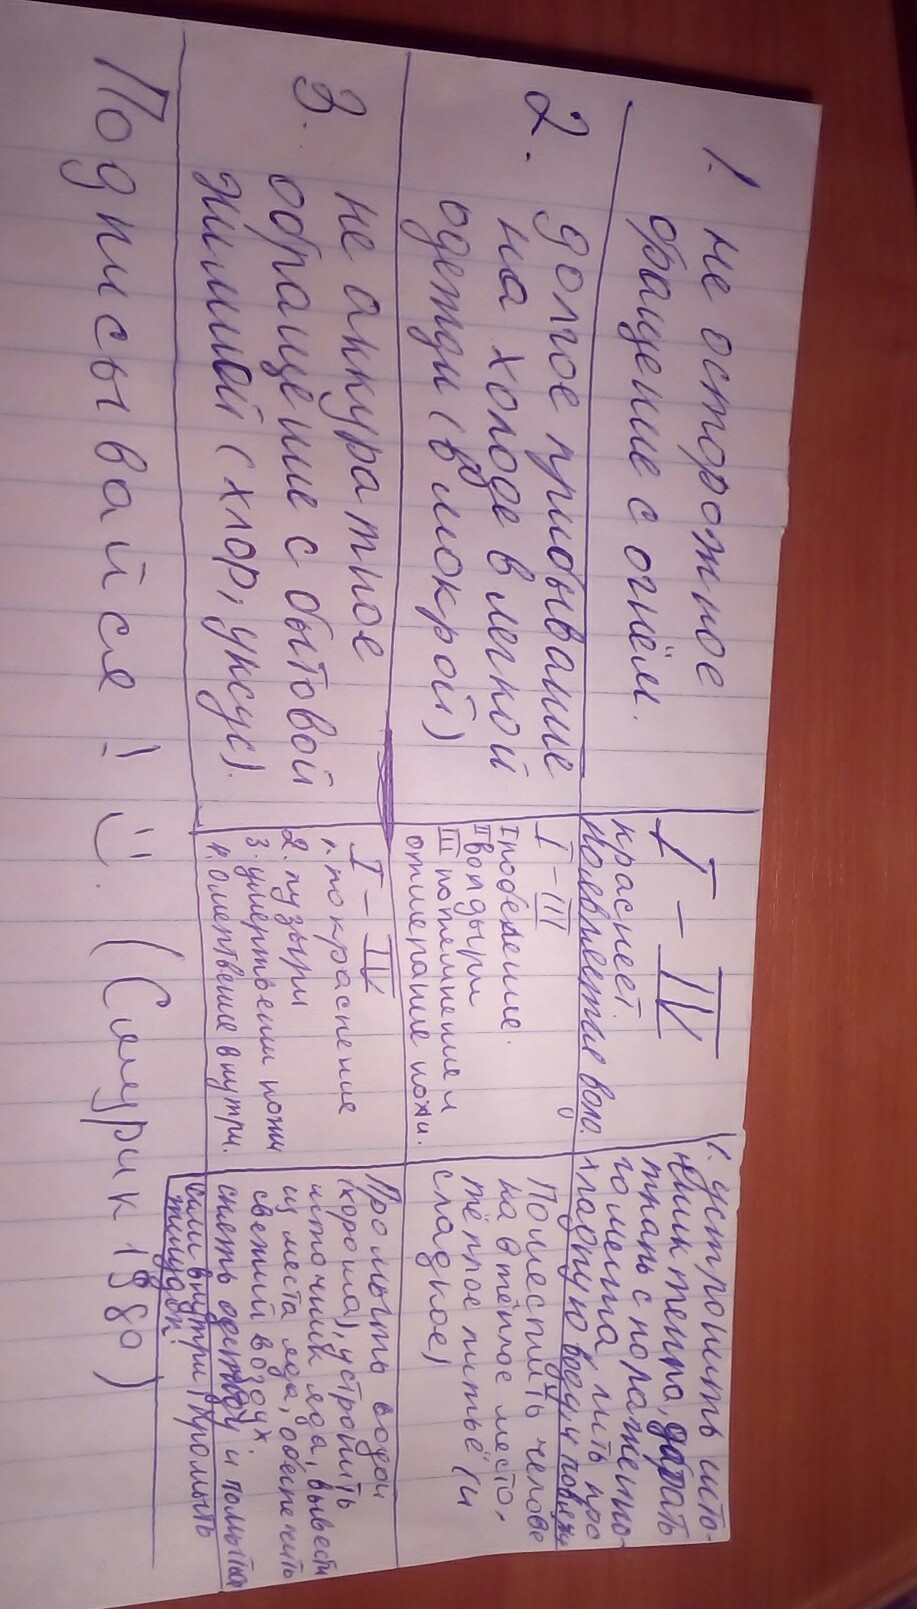 1. не осторожное
обращение с огнём.
I - IV
краснеет.
появляется воло.
1. устронить исто-
чник тепла, дабрать
ткань с пораженно-
го места, пить про
хладную воду и повязку
2. долгое прибывание
на холоде в легкой
одежди (в мокрой)
I - III
I побеление.
II волдыри
III потемнение и
отмерание кожи.
Поместить челове
на в тёплое место,
тёплое питьё (и
сладкое)
3. не аккуратное
обращение с бытовой
химией (хлор, уксус).
I - IV
1. покраснение
2. пузыри
3. умертвении кожи
4. омертвение внутри.
Промыть водой
(хорошо), устронить
источник яда, вывести
из места яда, обеспечить
свежий воздух.
снеть одежду и помыться
если внутри, промыть
желудок.
Подписывайся! :). (Смурик 1980)